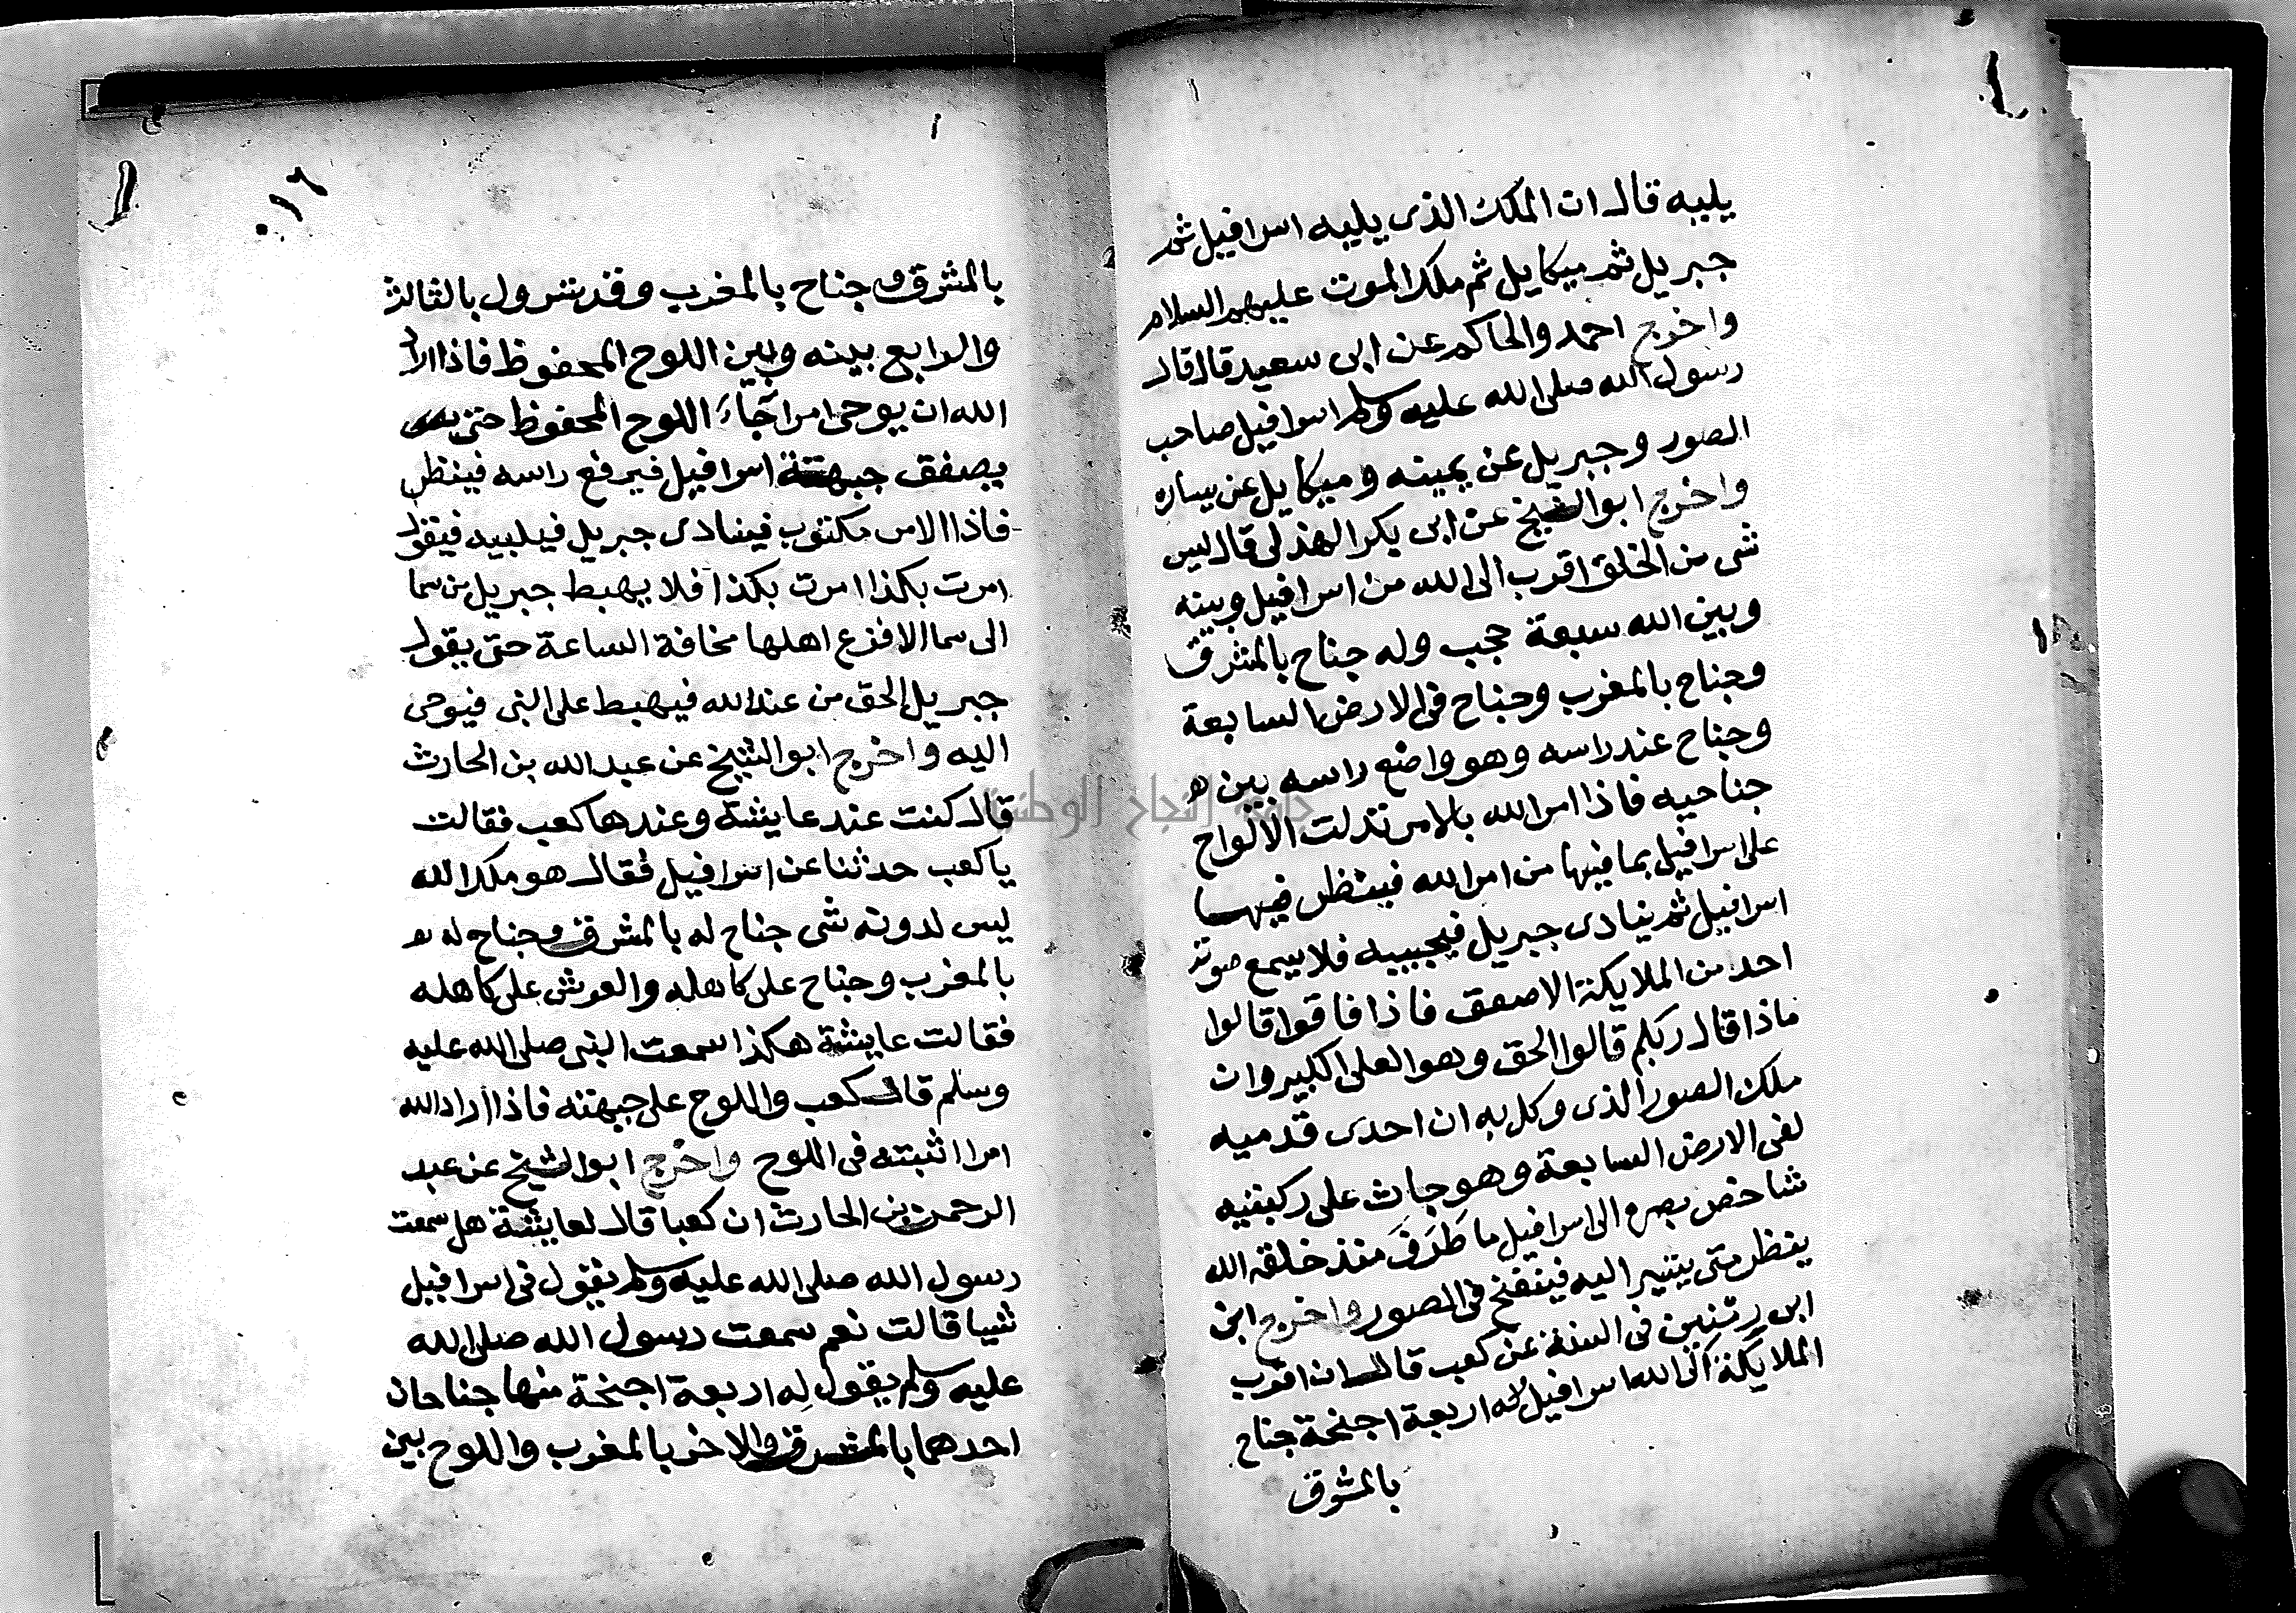 يليه قال ان الملك الذى يليه اسرافيل ثم
جبريل ثم ميكايل ثم ملك الموت عليهم السلام
واخرج احمد والحاكم عن ابى سعيد قال قال
رسول الله صلى الله عليه وسلم اسرافيل صاحب
الصور وجبريل عن يمينه وميكايل عن يساره
واخرج ابو الشيخ عن ابى بكر الهذلى قال ليس
شى من الخلق اقرب الى الله من اسرافيل وبينه
وبين الله سبعة حجب وله جناح بالمشرق
وجناح بالمغرب وجناح فى الارض السابعة
وجناح عند راسه وهو واضع راسه بين
جناحيه فاذا امر الله بالامر تدلت الالواح
على اسرافيل بما فيها من امر الله فينظر فيها
اسرافيل ثم ينادى جبريل فيجيبه فلا يسمع صوته
احد من الملايكة الا صعق فاذا فاقوا قالوا
ماذا قال ربكم قالوا الحق وهو العلى الكبير وان
ملك الصور الذى وكل به ان احدى قدميه
لفى الارض السابعة وهو جاث على ركبتيه
شاخص بصره الى اسرافيل ما طَرَفَ منذ خلقه الله
ينظر متى يشير اليه فينفخ فى الصور واخرج ابن
ابى زمنين فى السنة عن كعب قال ان اقرب
الملايكة الى الله اسرافيل له اربعة اجنحة جناح
بالمشرق
٠١٦
بالمشرق وجناح بالمغرب وقد تسرول بالثالث
والرابع بينه وبين اللوح المحفوظ فاذا اراد
الله ان يوحى امرا جاء اللوح المحفوظ حتى
يصفق جبهة اسرافيل فيرفع راسه فينظر
فاذا الامر مكتوب فينادى جبريل فيلبيه فيقول
امرت بكذا امرت بكذا فلا يهبط جبريل من سما
الى سما الا فزع اهلها مخافة الساعة حتى يقول
جبريل الحق من عند الله فيهبط على النبى فيوحى
اليه واخرج ابو الشيخ عن عبد الله بن الحارث
قال كنت عند عايشة وعندها كعب فقالت
يا كعب حدثنا عن اسرافيل فقال هو ملك الله
ليس لدونه شى جناح له بالمشرق وجناح له
بالمغرب وجناح على كاهله والعرش على كاهله
فقالت عايشة هكذا سمعت النبى صلى الله عليه
وسلم قال كعب واللوح على جبهته فاذا اراد الله
امرا اثبته فى اللوح واخرج ابو الشيخ عن عبد
الرحمن بن الحارث ان كعبا قال لعايشة هل سمعت
رسول الله صلى الله عليه وسلم يقول فى اسرافيل
شيا قالت نعم سمعت رسول الله صلى الله
عليه وسلم يقول له اربعة اجنحة منها جناحان
احدهما بالمشرق والاخر بالمغرب واللوح بين
جامعة النجاح الوطنية